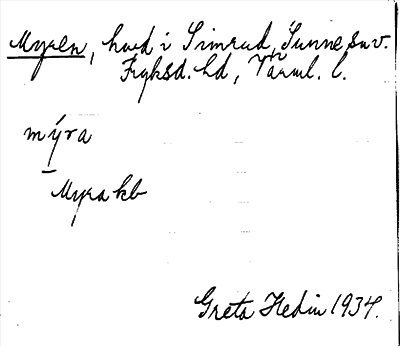 Myren, hvd i Simrud, Sunne sn v.
Fryksd. hd, Värml. l.
mýra
Myra kb
Greta Hedin 1934.